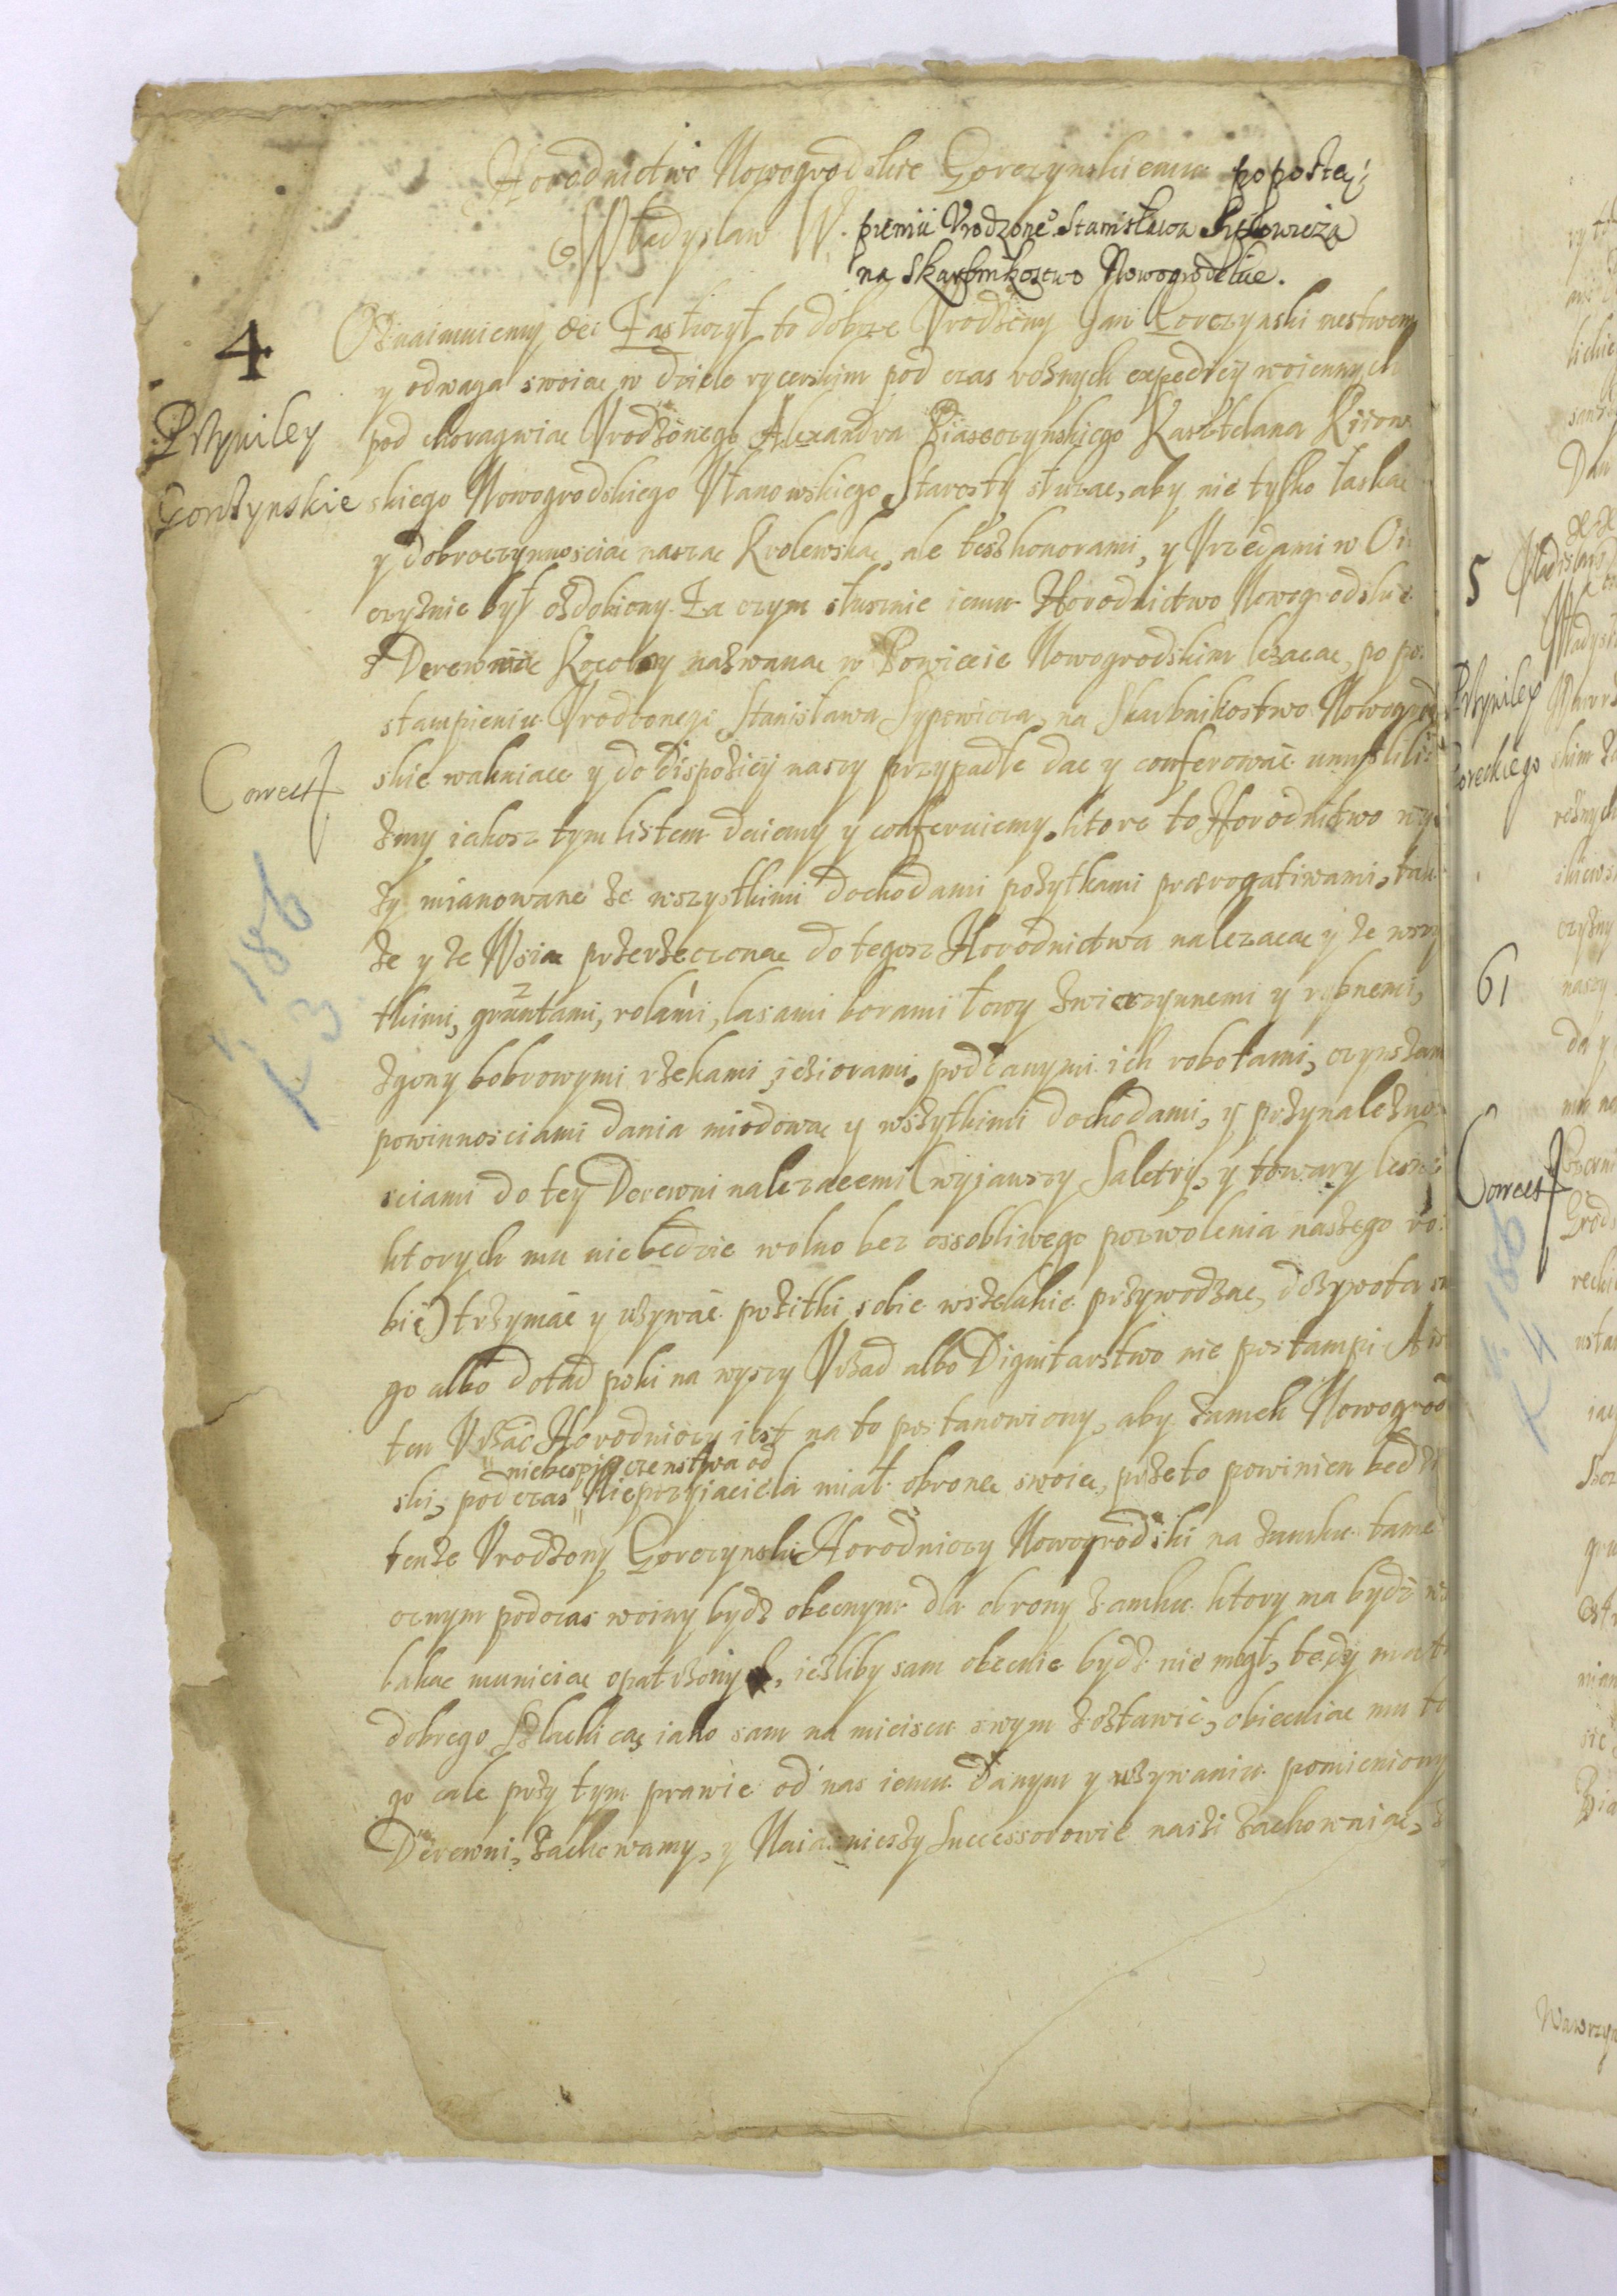 Horodnictwo Nowogrodskie Gorczynskiemu po postą,
Władysław IV. pieniu Vrodzone° Stanisława Sypowicza
na Skarbnikostwo Nowogrodskie.
4
Oznaimuiemy etc Zasłuzył to dobrze Vrodzony Jan Gorczynski mestwem
y odwaga swoiae w dziele rycerskim pod czas roznych expedicij woiennych
Przywiley
pod choragwiae Vrodzonego Alexandra Piaseczynskiego Kasztelana Kiiow
Gorczynskie
skiego Nowogrodskiego Vłanowskiego Starosty słuzac, aby nie tylko łaskae
y dobroczynnosciae naszae Krolewskae, ale tesz honorami, y Vrzedami w Oi
czyznie był ozdobiony. Za czym słusznie iemu Horodnictwo Nowogrodskie
z Derewniae nazwanae w Powiecie Nowogrodskim lezacae, po po
stampieniu Vrodzonego Stanisława Sypowicza, na Skarbnikostwo Nowogrod
skie wakuiace y do dispozicij naszy przypadłe dac y conferowac umyslili
Correct
zmy iakosz tym listem daiemy y conferuiemy, ktore to Horodnictwo wy
zy mianowane ze wszystkimi dochodami pozytkami praerogatiwami, tak
ze y ze Wsiae przerzeczonae do tegosz Horodnictwa nalezacae y ze wszy
tkimi, gruntami, rolami, lasami borami łowy zwierzynnemi y rybnemi,
zgony bobrowymi rzekami jeziorami, poddanymi ich robotami, czynszam
powinnosciami dania miodowae y wszytkimi dochodami, y przynalezno
sciami do tey Derewni nalezacemi (wyjawszy Saletry, y towary lesne
ktorych mu niebedzie wolno bez ossobliwego pozwolenia naszego ro
bic) trzymac y uzywac pozitki sobie wszelakie przywodzac, do zywota sw
go albo dotad poki na wyszy Vrzad albo Dignitarstwo nie postampi A iz
ten Vrzad Horodniczy iest na to postanowiony, aby zamek Nowogrod
niebespieczenstwa od
ski, pod czas Nieprzyiaciela miał obronae swoiae, przeto powinien bedzi
tenze Vrodzony Gorczynski Horodniczy Nowogrodski na zamku tame
cznym podczas woiny bydz obecnym dla obrony zamku ktory ma bydz ws
lakae municiae opatrzony, iezliby sam obecnie bydz nie mogł, tedy ma t
dobrego Szlachcica iako sam na mieiscu swym zostawic, obiecuiac mu te
go cale przy tym prawie od nas iemu danym y uzywaniu pomieniony
Derewni, zachowamy, y Naiasnieszy Successorowie naszi zachowaiae, z
f. 186
K 3
5
Przywiley
Goreckiego
61
Correct
f. 186
K 4